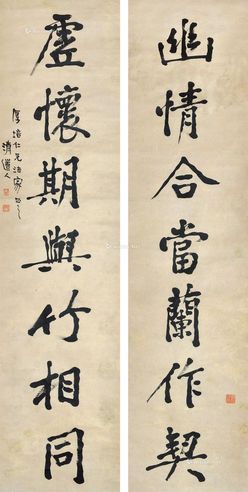 幽情合當蘭作契
虛懷期與竹相同
厚培仁兄法家正之
清道人